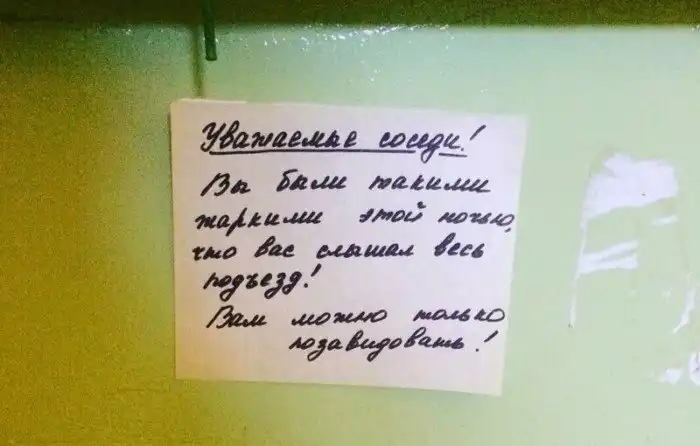 Уважаемые соседи!
Вы были такими
жаркими этой ночью,
что вас слышал весь
подъезд!
Вам можно только
позавидовать!